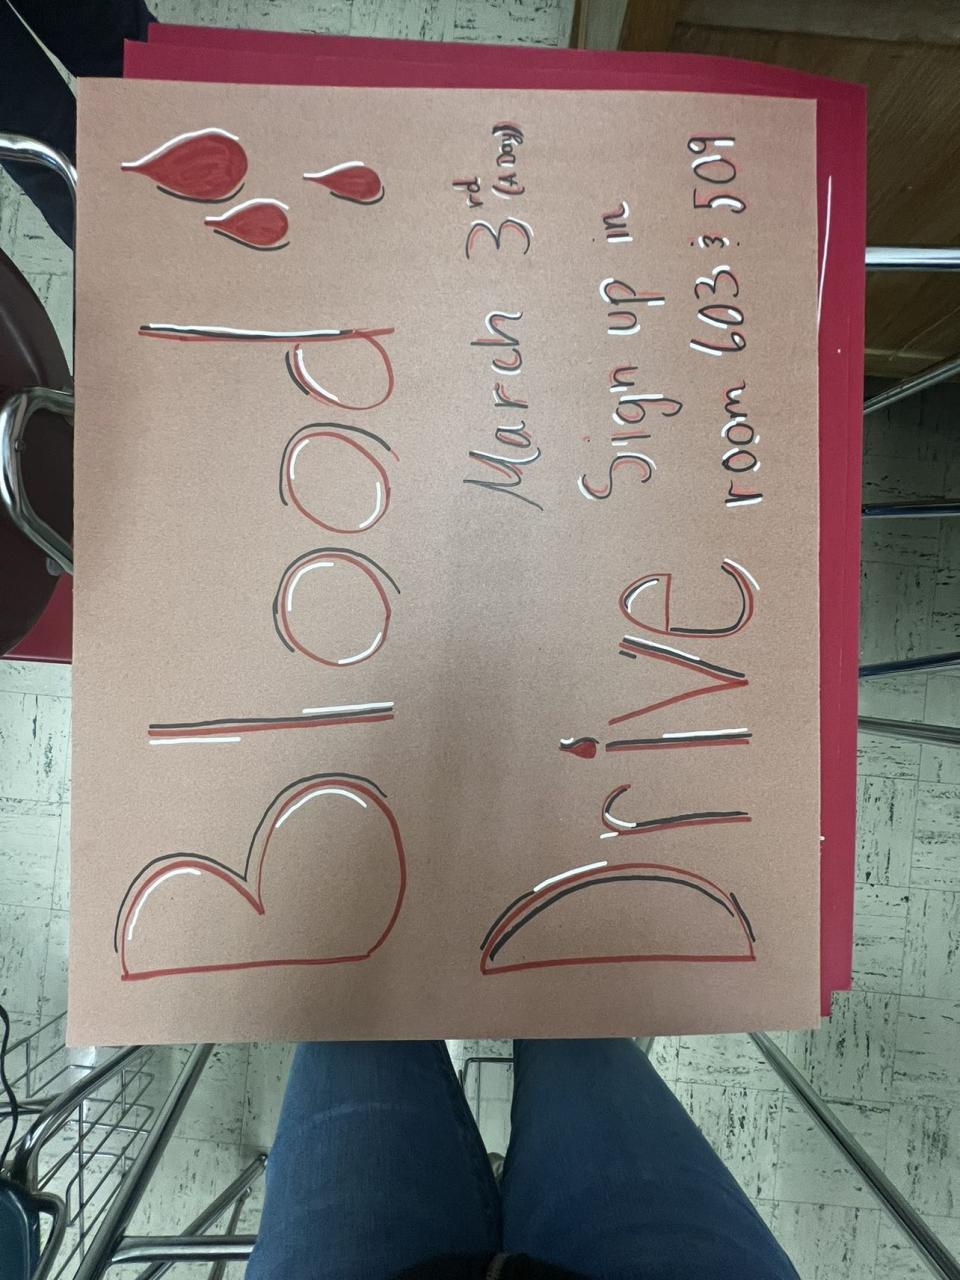 Blood
March 3rd (A Day)
Sign up in
Drive room 603 & 509